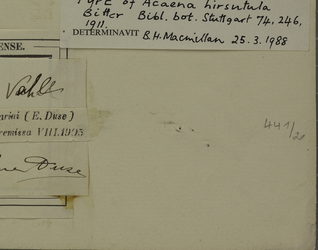 Type of Acaena hirsutula
Bitter Bibl. bot. Stuttgart 74, 246,
1911.
DETERMINAVIT B.H. Macmillan 25.3.1988
ENSE.
Vahl
arini ( E. Duse )
remissa VIII.1995
Duse
441/2